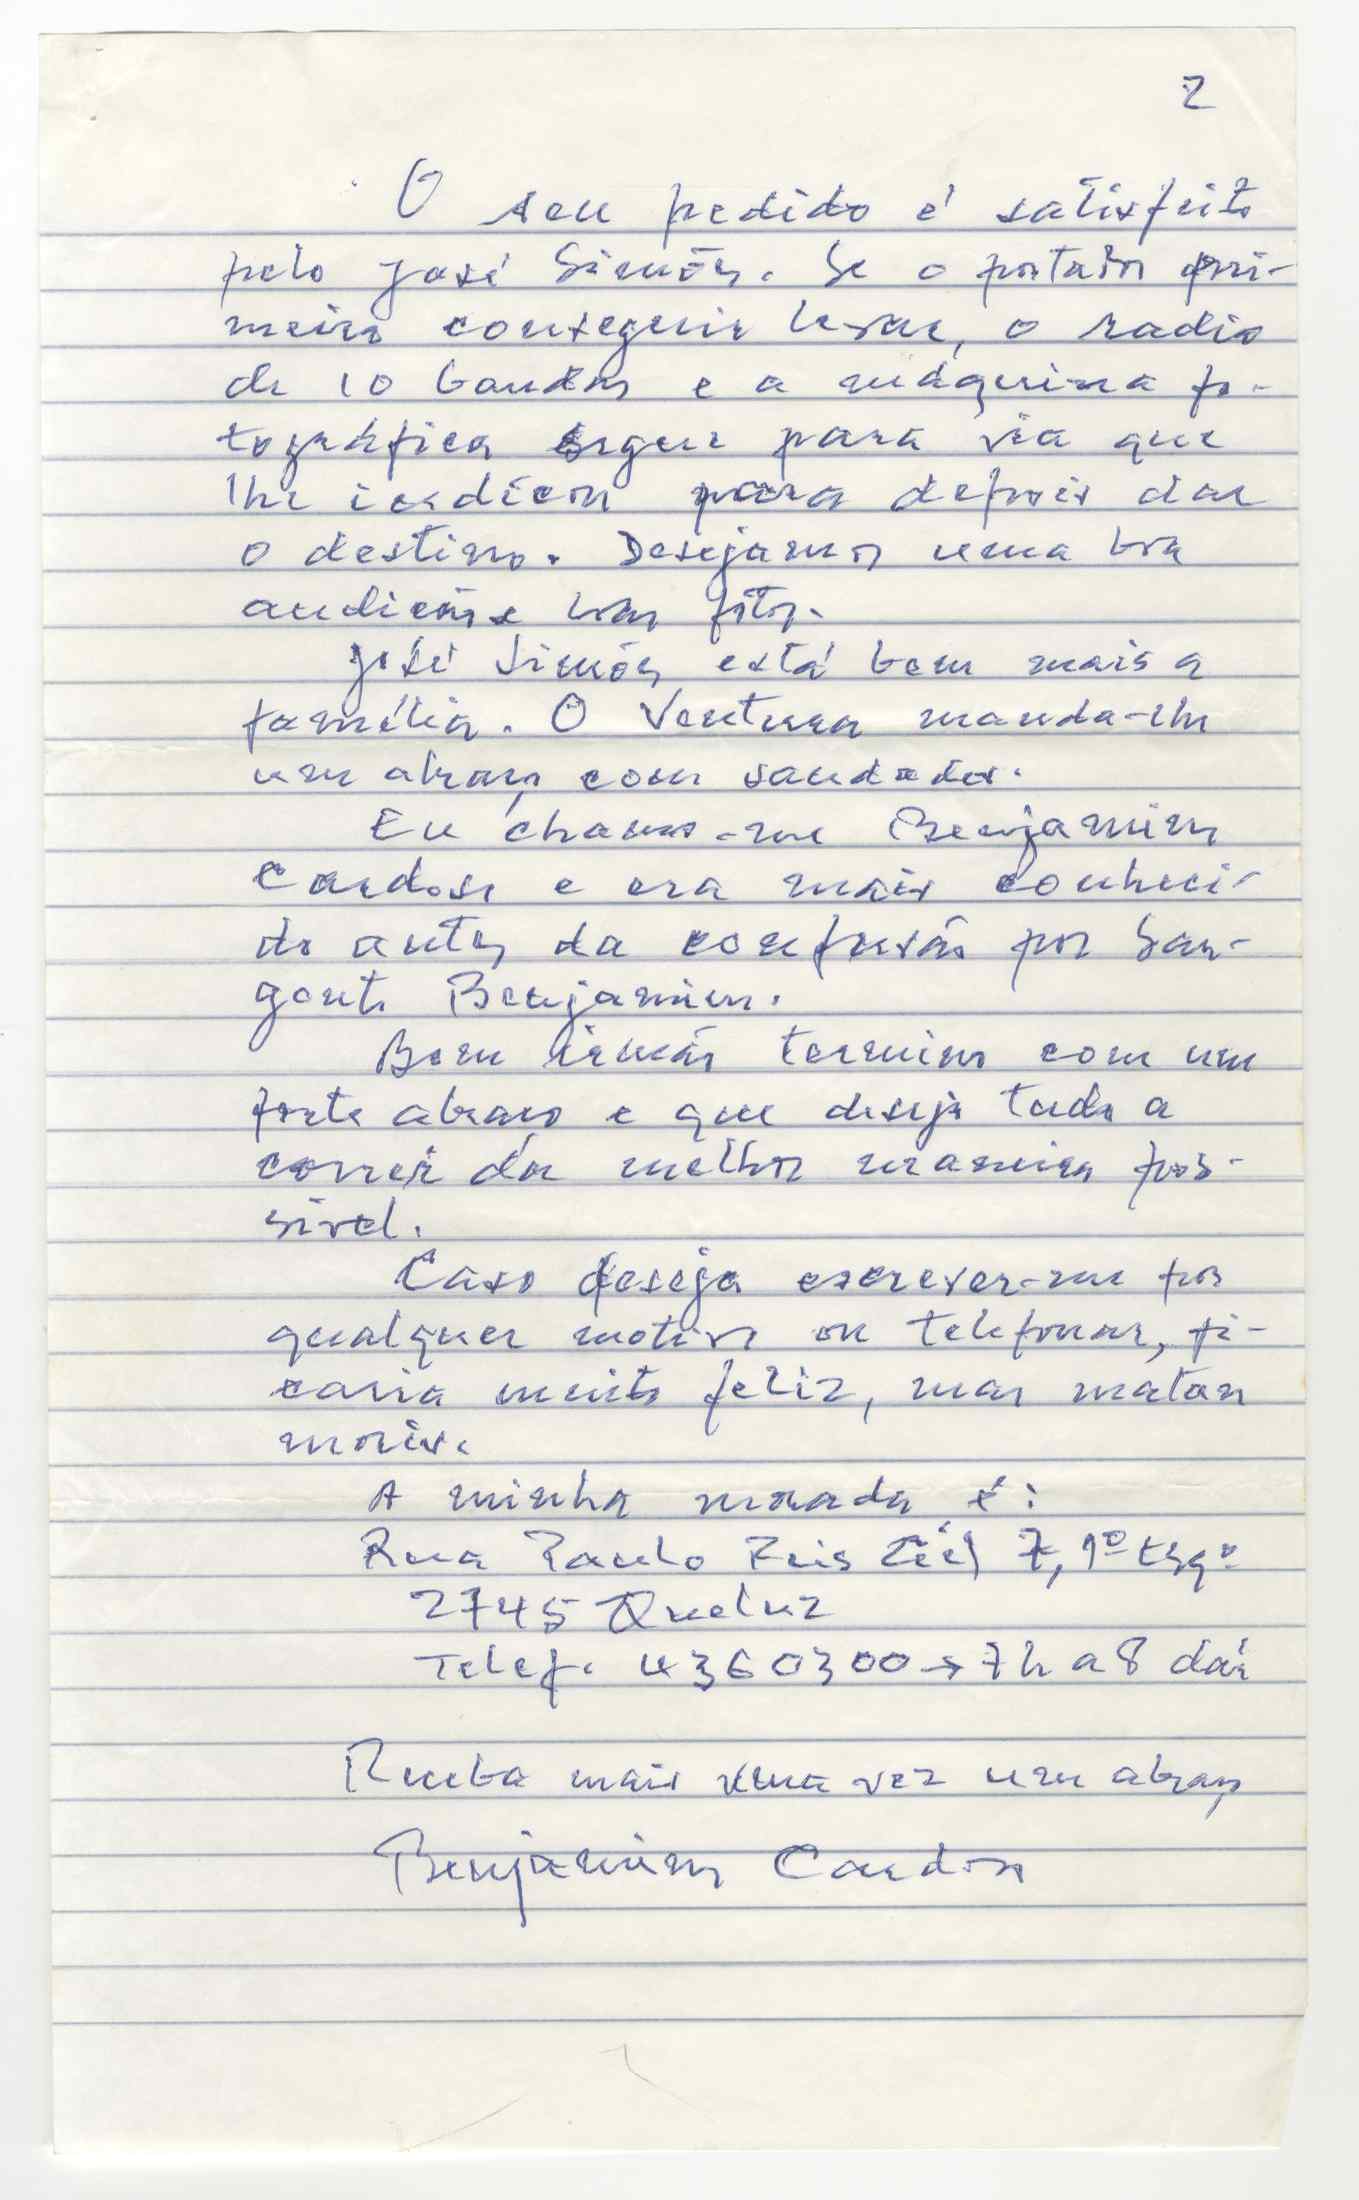 2
O seu pedido é satisfeito
pelo José Simões. Se o portador pri-
meiro conseguir levar, o radio
de 10 bandas e a máquina fo-
tográfica segue para via que
lhe indicou para depois dar
o destino. Desejamos uma boa
audição e boas fotos.
José Simões está bem mais a
família. O Ventura manda-lhe
um abraço com saudades.
Eu chamo-me Benjamim
Cardoso e era mais conheci-
do antes da confusão por Sar-
gento Benjamim.
Bom irmão termino com um
forte abraço e que deseja tudo a
correr da melhor maneira pos-
sivel.
Caso deseja escrever-me por
qualquer motivo ou telefonar, fi-
caria muito feliz, mas
mais.
A minha morada é:
Rua Paulo Reis Gil 7, 1º Esqº
2745 Queluz
Telef. 4360300 → 7 h a 8 dás
Receba mais uma vez um abraço
Benjamim Cardoso